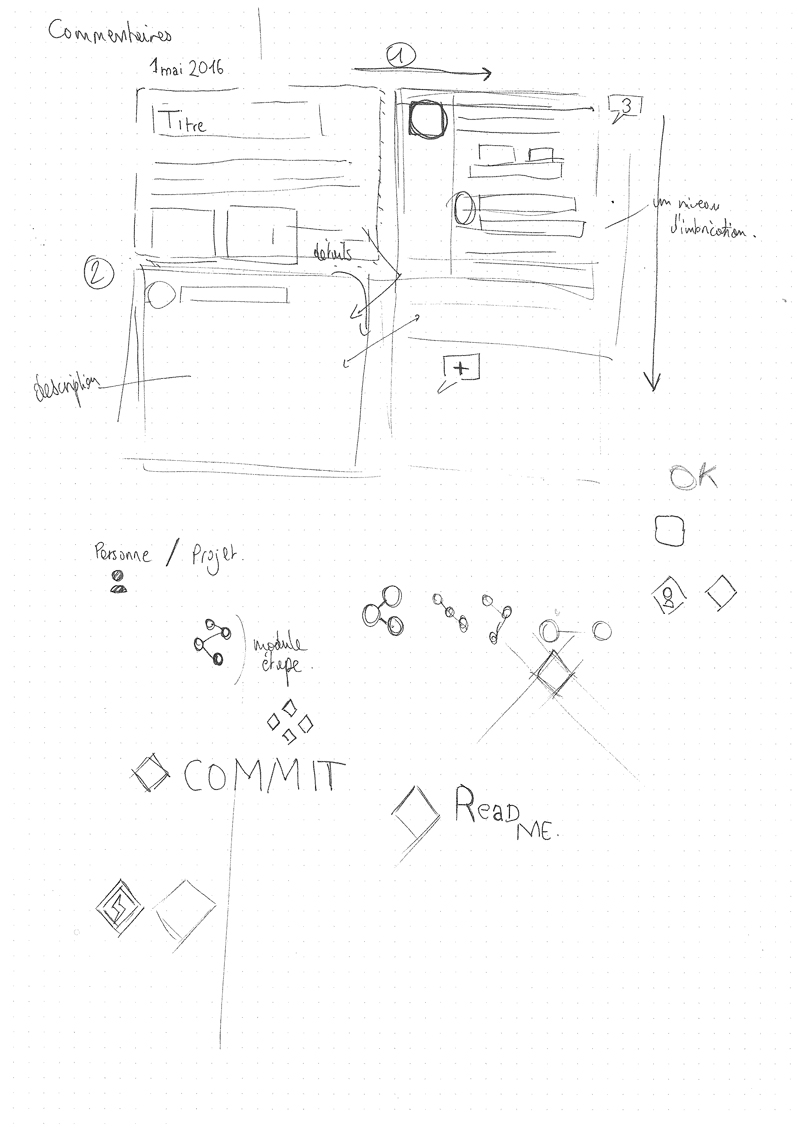 Commentaires
1 mai 2016
1
Titre
3
un niveau
d'imbrication.
détails
2
description
+
OK
Personne / Projet.
module
étape.
COMMIT
ReaD
ME.